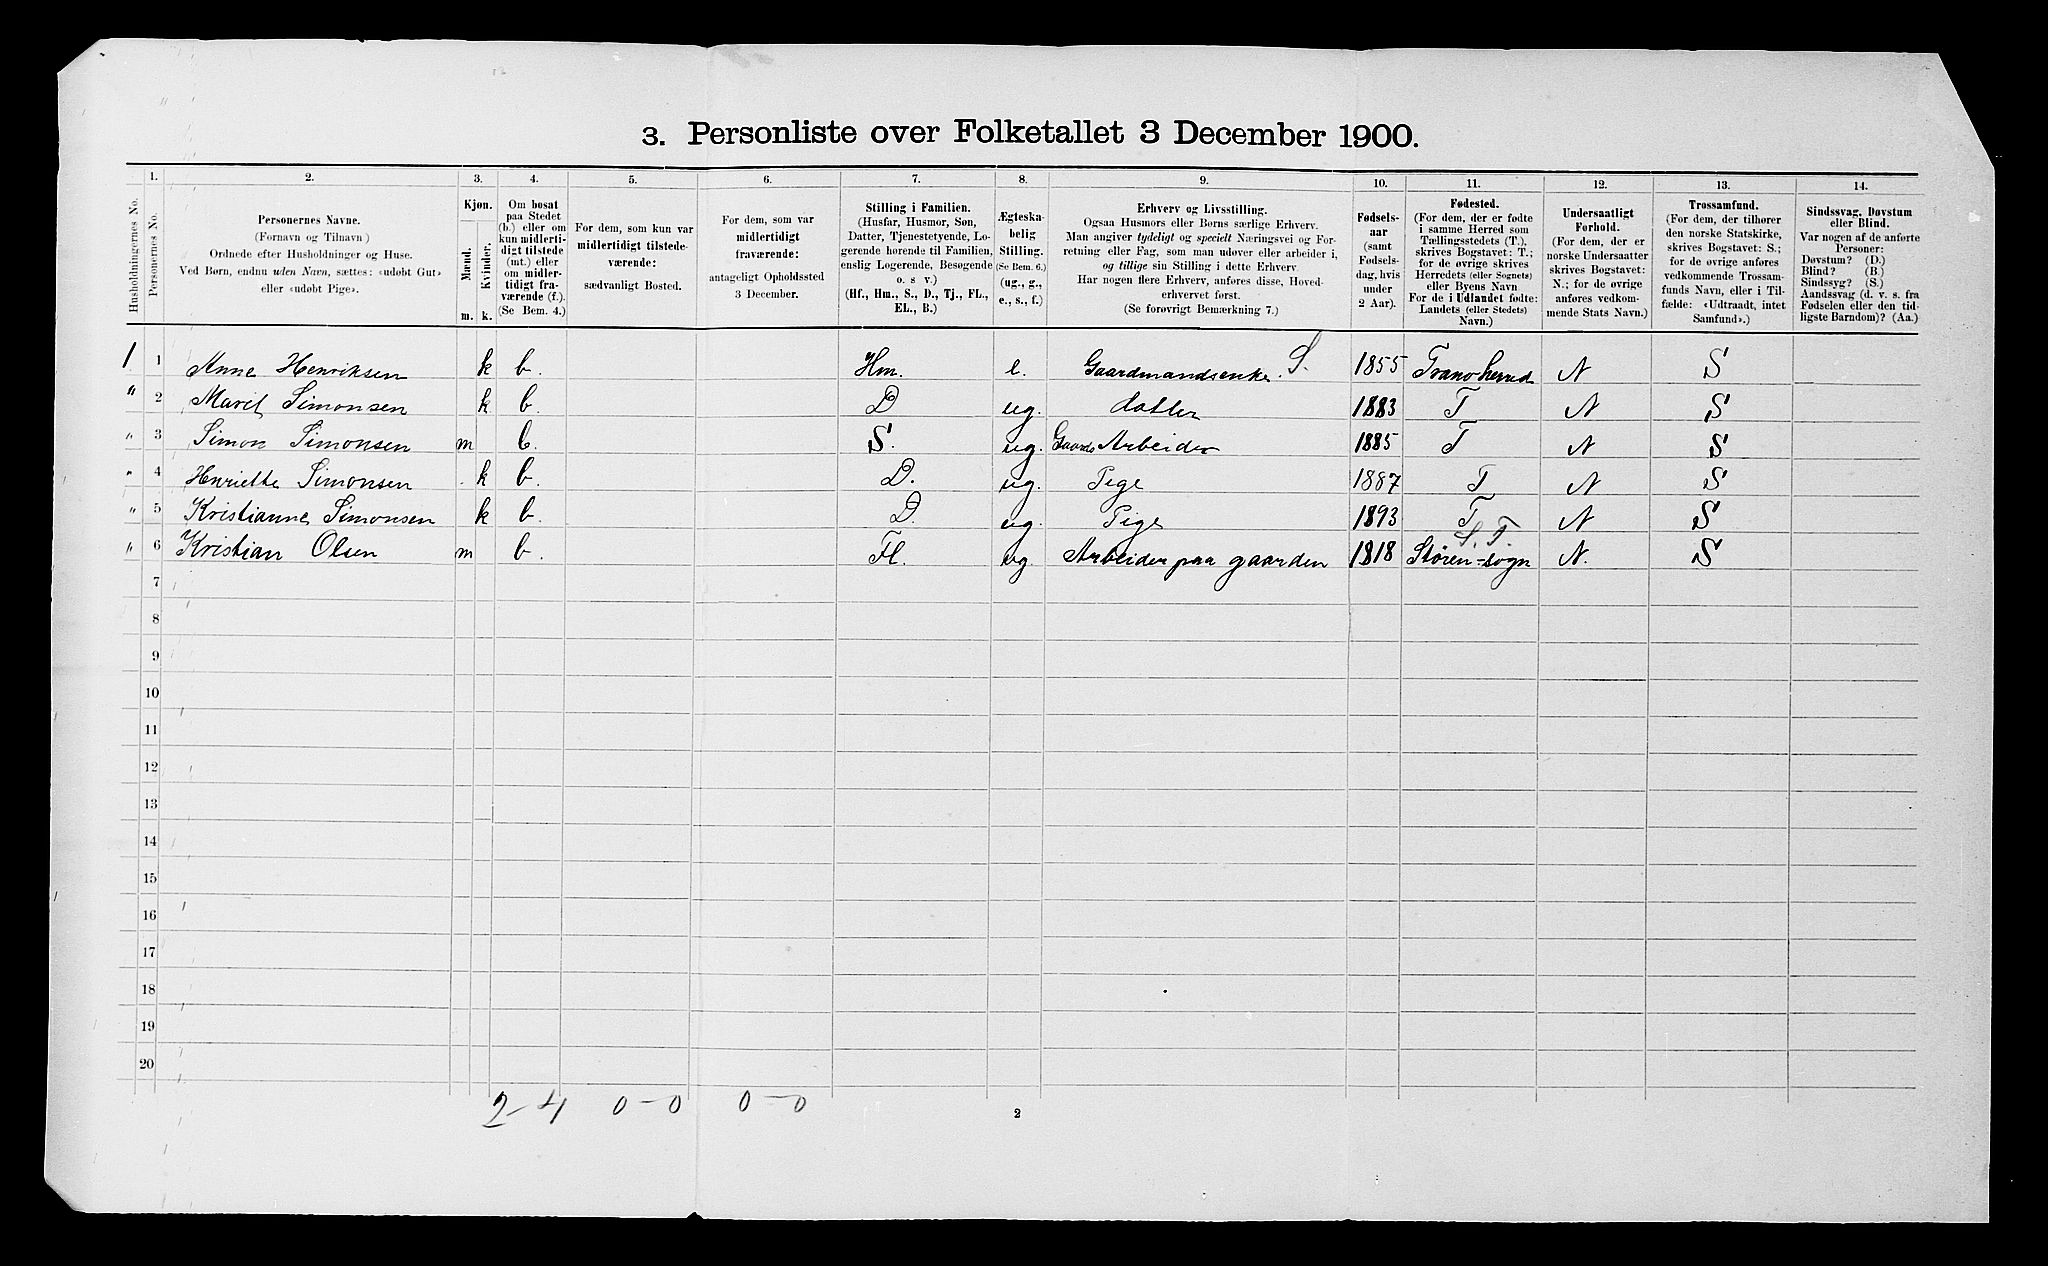 3. Personliste over Folketallet 3 December 1900.
1. 2. 3. 4. 5. 6. 7. 8. 9. 10. 11. 12. 13. 14.
Husholdningernes No.
Personernes No.
Personernes Navne.
(Fornavn og Tilnavn)
Ordnede efter Husholdninger og Huse.
Ved Børn, endnu uden Navn, sættes: «udøbt Gut»
eller «udøbt Pige».
Kjøn.
Mænd.
Kvinder.
m. k.
Om bosat
paa Stedet
(b.) eller om
kun midlerti-
digt tilstede
(mt.) eller
om midler-
tidigt fra-
værende (f.).
(Se Bem. 4.)
For dem, som kun var
midlertidigt tilstede-
værende:
sædvanligt Bosted.
For dem, som var
midlertidigt
fraværende:
antageligt Opholdssted
3 December.
Stilling i Familien.
(Husfar, Husmor, Søn,
Datter, Tjenestetyende, Lo-
gerende hørende til Familien,
enslig Logerende, Besøgende
o. s v.)
(Hf., Hm., S., D., Tj., FL.,
EL., B.)
Ægteska-
belig
Stilling.
(Se Bem. 6.)
(ug., g.,
e., s., f.)
Erhverv og Livsstilling.
Ogsaa Husmors eller Børns særlige Erhverv.
Man angiver tydeligt og specielt Næringsvei og For-
retning eller Fag, som man udøver eller arbeider i,
og tillige sin Stilling i dette Erhverv.
Har nogen flere Erhverv, anføres disse, Hoved-
erhvervet først.
(Se forøvrigt Bemærkning 7.)
Fødsels-
aar
(samt
Fødsels-
dag, hvis
under
2 Aar).
Fødested.
(For dem, der er fødte
i samme Herred som
Tællingsstedets (T.).
skrives Bogstavet: T.;
for de øvrige skrives
Herredets (eller Sognets)
eller Byens Navn
For de i Udlandet fødte:
Landets (eller Stedets)
Navn.)
Undersaatligt
Forhold.
(For dem, der er
norske Undersaatter
skrives Bogstavet:
N.; for de øvrige
anføres vedkom-
mende Stats Navn.)
Trossamfund.
(For dem, der tilhører
den norske Statskirke,
skrives Bogstavet: S.;
for de øvrige anføres
vedkommende Trossam-
funds Navn, eller i Til-
fælde: «Udtraadt, intet
Samfund».)
Sindssvag, Døvstum
eller Blind.
Var nogen af de anførte
Personer:
Døvstum? (D.)
Blind? (B.)
Sindssyg? (S.)
Aandssvag (d. v. s. fra
Fødselen eller den tid-
ligste Barndom)? (Aa.)
1 1 Anne Henriksen k b. Hm. e. Gaardmandsenke. S. 1855 Tranø herred N S
" 2 Marit Simonsen k b. D ug. datter 1883 T N S
" 3 Simon Simonsen m b. S. ug. Gaards Arbeider 1885 T N S
" 4 Henriette Simonsen k b. D. ug. Pige 1887 T N S
" 5 Kristianne Simonsen k b. D. ug. Pige 1893 T N S
S. T.
" 6 Kristian Olsen m b. Fl. ug. Arbeider paa gaarden 1818 Støren-sogn N. S
7
8
9
10
11
12
13
14
15
16
17
18
19
20
2-4 0-0 0-0
2